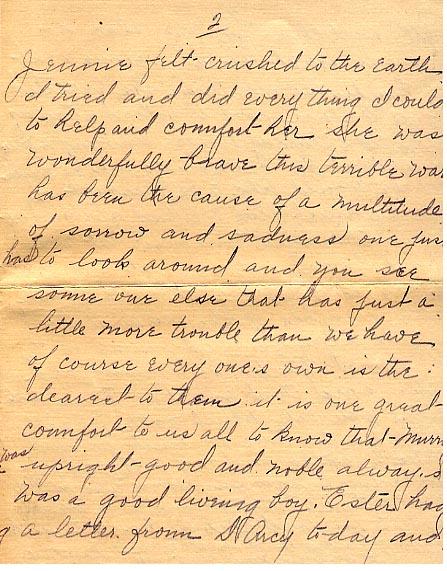 2
Jennie felt crushed to the earth
I tried and did everything I coul
to help and comfort her she was
wonderfully brave this terrible war
has been the cause of a multitude
of sorrow and sadness one jus
has to look around and you see
some one else that has just a
little more trouble than we have
of course every one,s own is the
dearest to them it is one great
comfort to us all to know that Murr
was upright good and noble always
was a good living boy. Ester had
a letter from D Arcy to day and